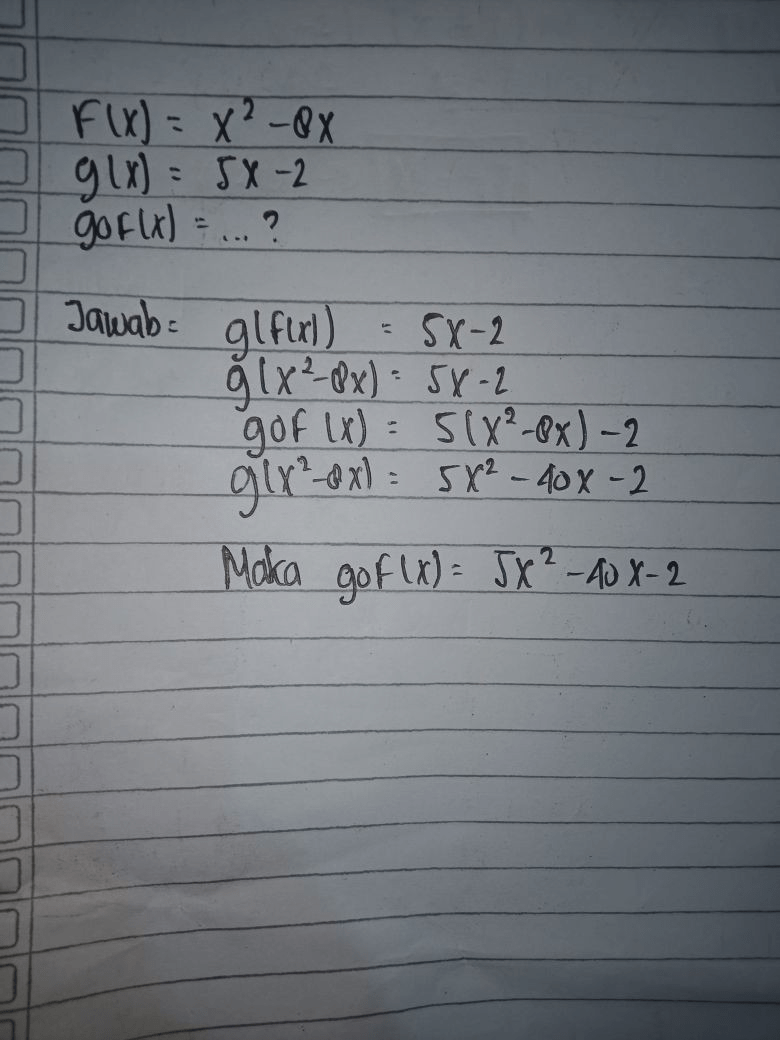 F(x) = x² -8x
g(x) = 5x -2
goF(x) = ... ?
Jawab = g(F(x)) = 5x-2
g(x²-8x) = 5x-2
goF (x) = 5(x²-8x) -2
g(x²-8x) = 5x² - 40x -2
Maka goF(x) = 5x² -40x-2